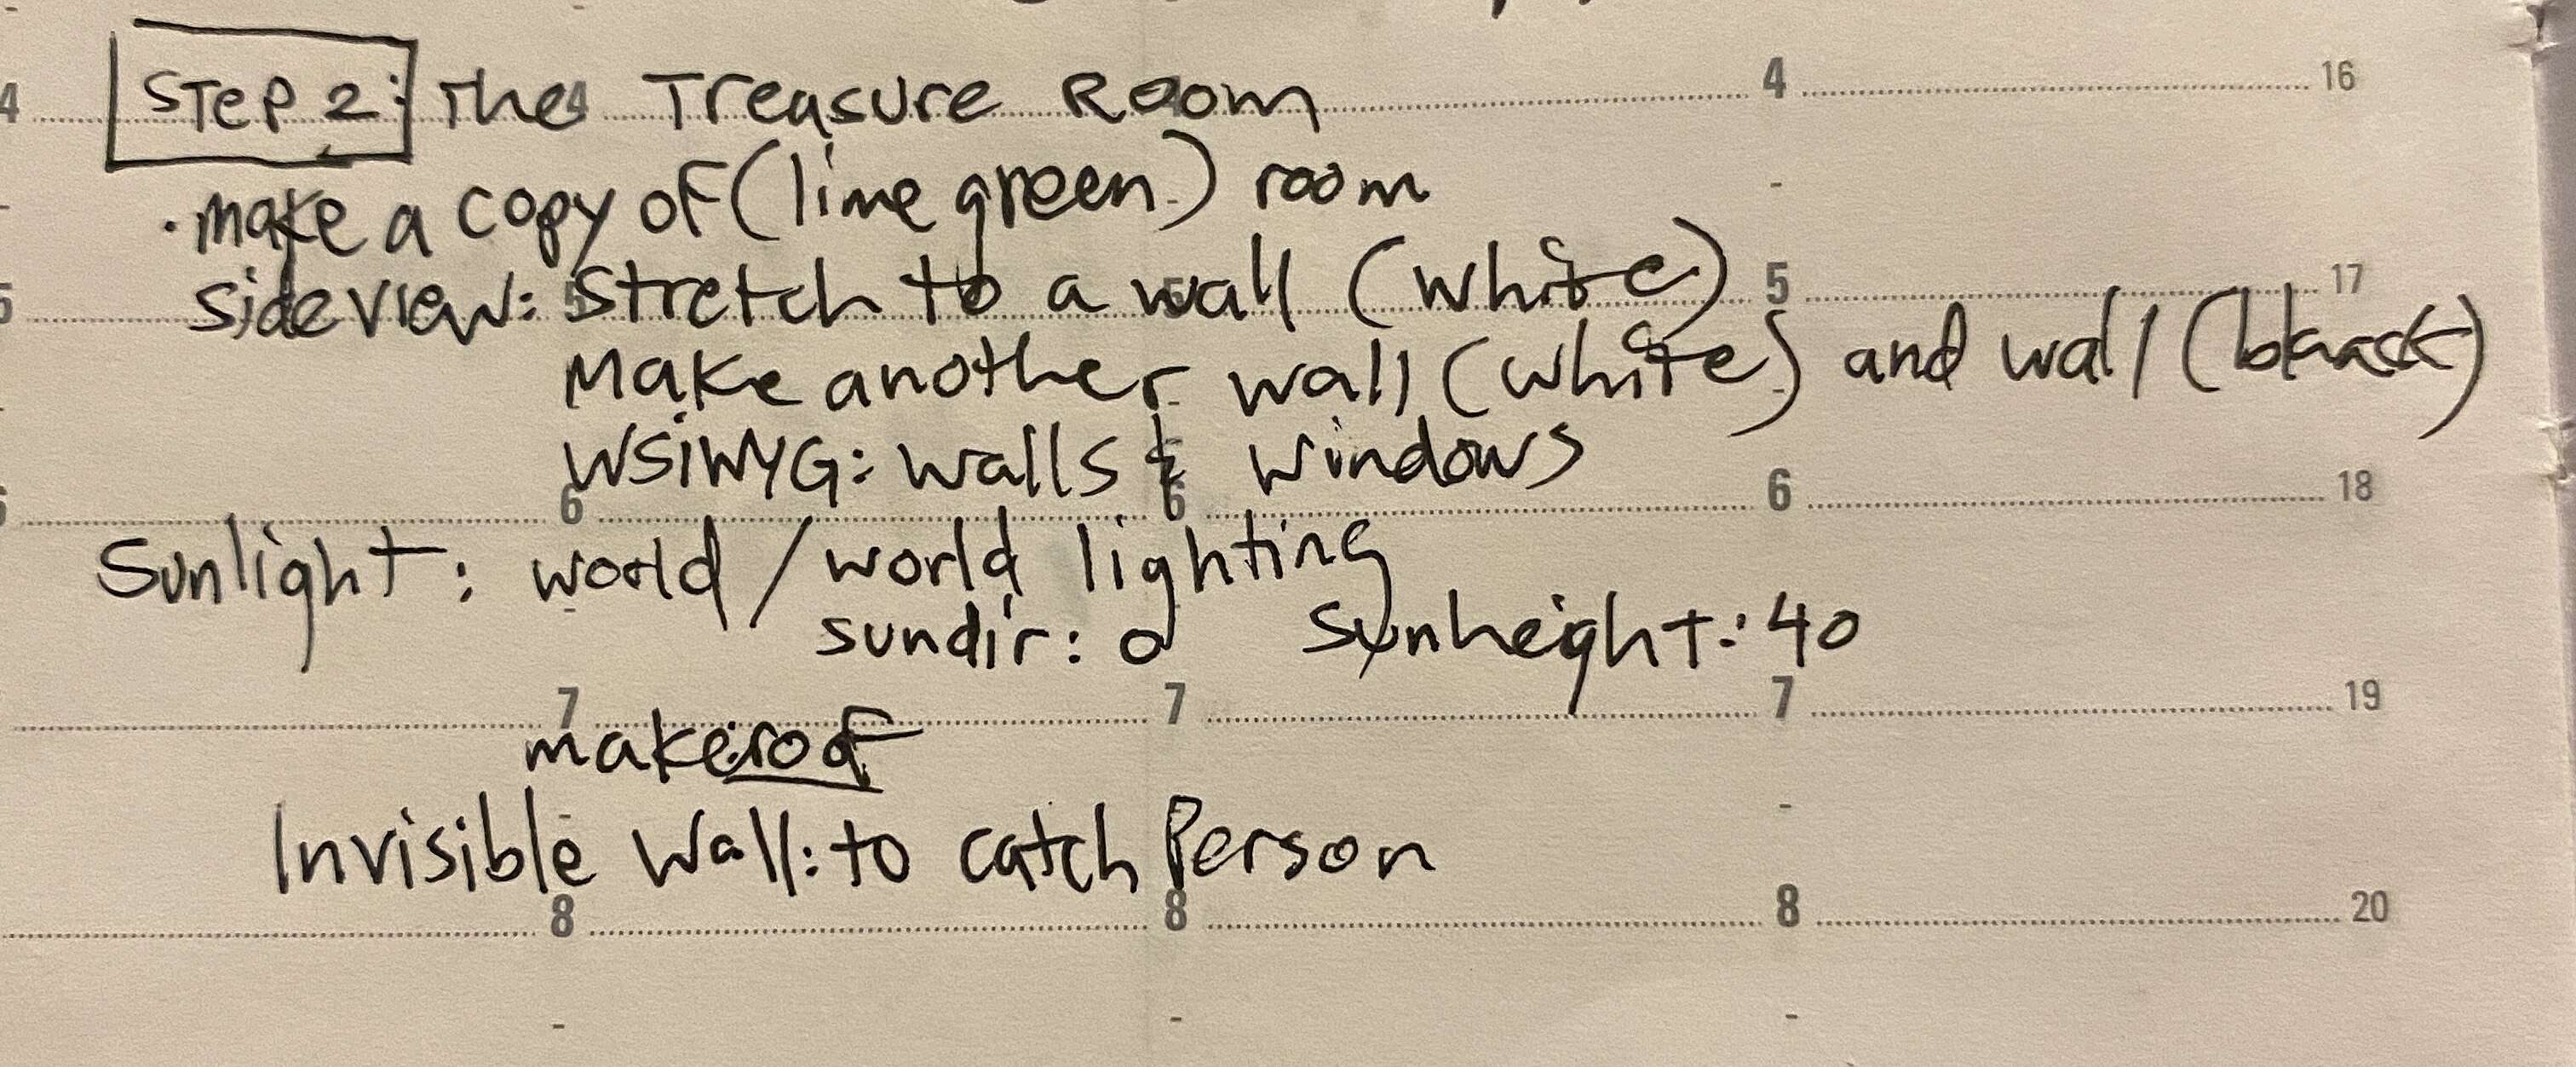 STEP 2: The Treasure Room
4 4 4 16
• make a copy of (lime green) room
side view: Stretch to a wall (white)
5 5 5 17
Make another wall (white) and wall (black)
WSiWYG: walls & windows
6 6 6 18
Sunlight: world / world lighting
sundir: 0 Sunheight: 40
7 7 7 19
make roof
Invisible Wall: to catch Person
8 8 8 20